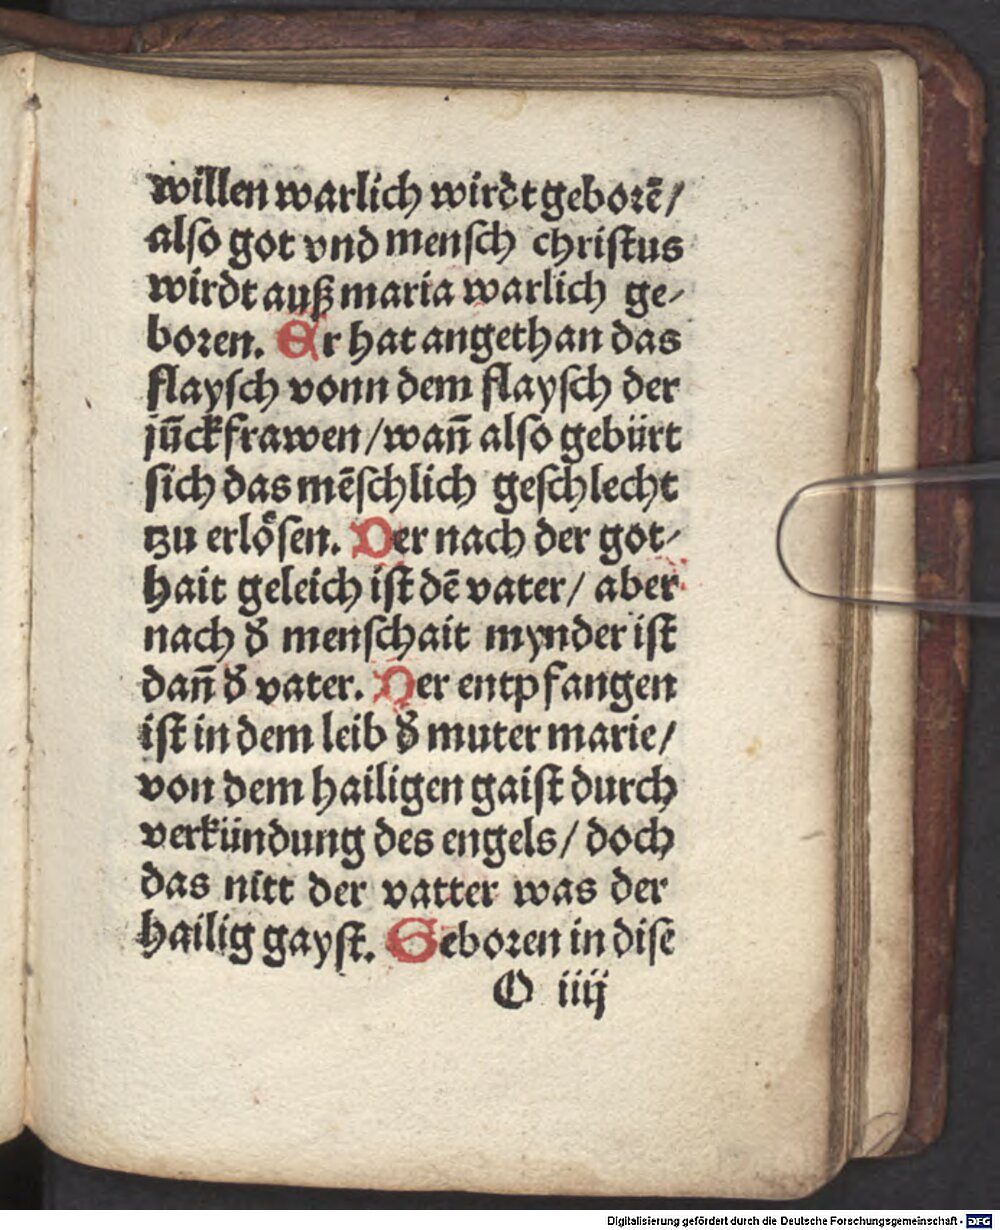 willen warlich wirdt geborē/
also got vnd mensch christus
wirdt auß maria warlich ge⸗
boren. Er hat angethan das
flaysch vonn dem flaysch der
jūckfrawen/wañ also gebürt
sich das mēschlich geschlecht
tzu erlösen. Der nach der got⸗
hait geleich ist dē vater/ aber
nach ď menschait mynder ist
dañ ď vater. Der entpfangen
ist in dem leib ď muter marie/
von dem hailigen gaist durch
verkündung des engels/ doch
das nitt der vatter was der
hailig gayst. Geboren in dise
O iiij
Digitalisierung gefördert durch die Deutsche Forschungsgemeinschaft - DFG